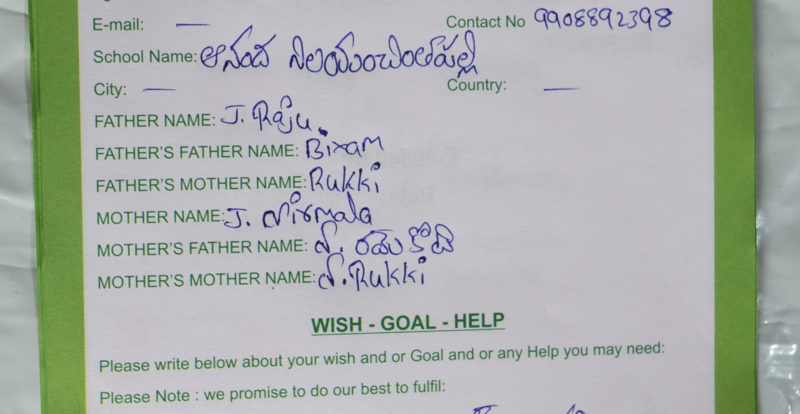 E-mail: — Contact No 9908892398
School Name: ఆనంద నిలయం
City: — Country: —
FATHER NAME: J. Raju.
FATHER'S FATHER NAME: Bixam
FATHER'S MOTHER NAME: Rukki
MOTHER NAME: J. Nirmala
MOTHER'S FATHER NAME:
MOTHER'S MOTHER NAME: Rukki
WISH - GOAL - HELP
Please write below about your wish and or Goal and or any Help you may need:
Please Note : we promise to do our best to fulfil: